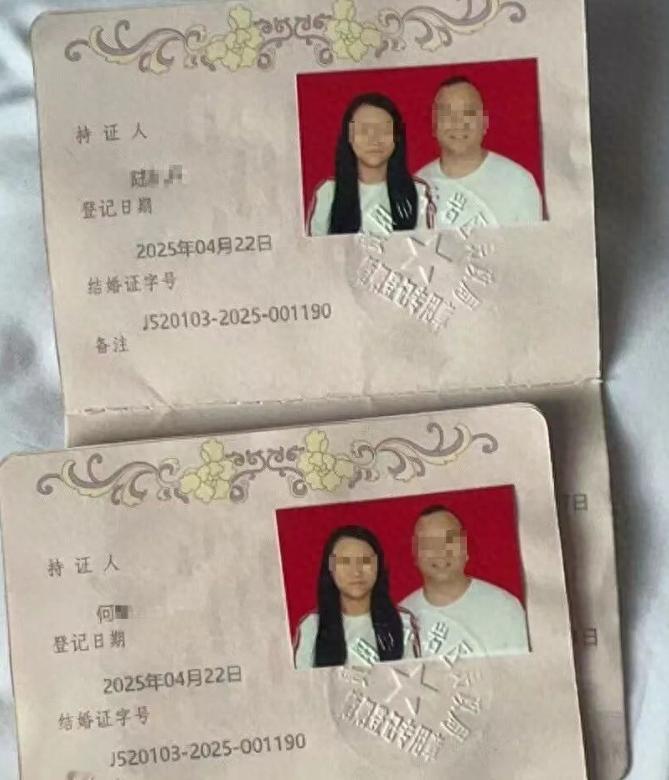 持证人
陆
登记日期
2025年04月22日
结婚证字号
J520103-2025-001190
备注
持证人
何
登记日期
2025年04月22日
结婚证字号
J520103-2025-001190
7日
日
婚姻登记专用章
婚姻登记专用章